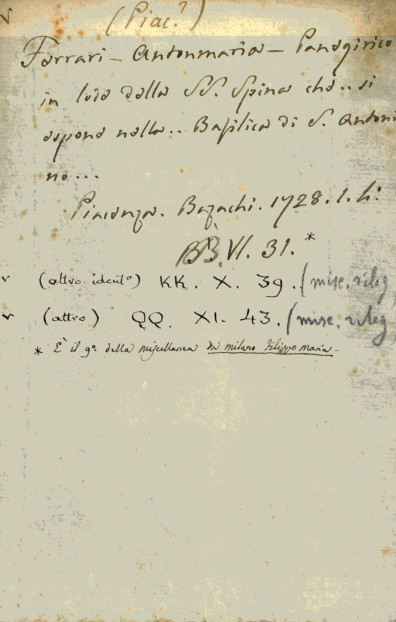 (Piac.?)
Ferrari - Antonmaria - Panegirico
in lode della SS. Spina che.. si
espone nella.. Basilica di S. Antoni
no...
Piacenza. Bazachi. 1728. l. h:
BB. VI. 31. *
v (altro ident.o) KK. X. 39. (misc. rileg
v (altro) QQ. XI. 43. (misc. rileg
* È il 9.o della miscellanea Da milano Filippo maria -